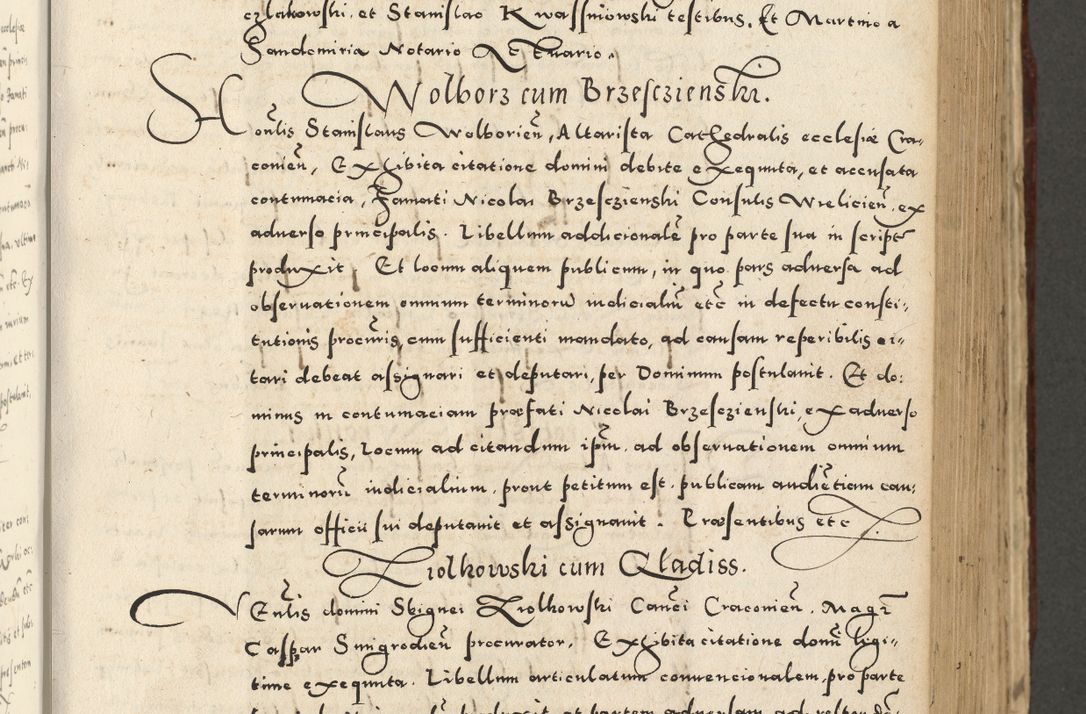 czlakowski, et Stanislao Kwassniowski testibus. Et Martino a
Sandomiria Notario Actuario.
Wolborz cum Brzesczienski.
Honlis Stanislaus Wolborien, Altarista Cathedralis ecclesiæ Cra-
conien, Exhibita citatione domini debite exequuta, et accusata
contumacia, Famati Nicolai Brzesczienski Consulis Wielicien, ex
adverso principalis. Libellum addicionale pro parte sua in script
produxit, Et locum aliquem publicum, in quo pars adversa ad
observationem omnium terminoru iudicialiu etc in defectu consti-
tutionis procuris, cum sufficienti mandato, ad causam reperibilis ci-
tari debeat assignari et deputari, per Dominum postulavit. Et do-
minus in contumaciam præfati Nicolai Brzesczienski, ex adverso
principalis, Locum ad citandum ipm. ad observationem omnium
terminoru iudicialium, prout petitum est, publicam audietiam cau-
sarum officii sui deputavit et assignavit. Præsentibus etc
Ziolkowski cum Gladiss.
Venlis domini Sbignei Ziolkowski Canci Craconien. Magr
Caspar Smigrodien procurator, Exhibita citatione domi legi-
time exequuta. Libellum articulatum convencionalem, pro parte